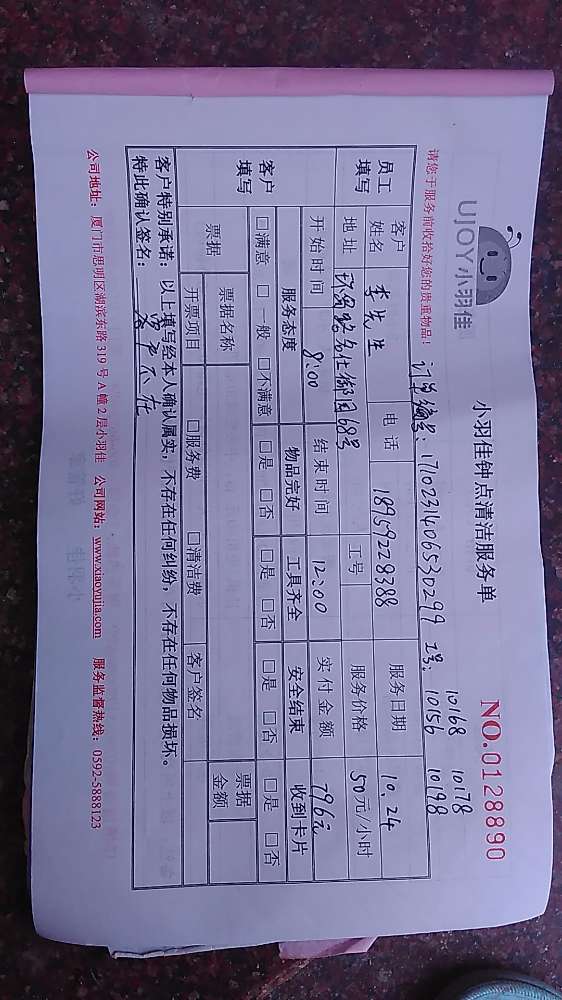 UJOY小羽佳
小羽佳钟点清洁服务单
NO.0128890
请您于服务前收拾好您的贵重物品！
订单编号：17102314065530299 工号：10156 10198
10168 10178
员工填写 客户姓名 李先生 电话 18959228388 服务日期 10.24
地址 环岛路名仕御园68号 工号 服务价格 50元/小时
开始时间 8:00 结束时间 12:00 实付金额 796元
客户填写 服务态度 物品完好 工具齐全 安全结束 收到卡片
□满意 □一般 □不满意 □是 □否 □是 □否 □是 □否 □是 □否
票据 票据名称 票据金额
开票项目 □服务费 □清洁费 客户签名
客户特别承诺：以上填写经本人确认属实，不存在任何纠纷，不存在任何物品损坏。
特此确认签名：客户不在
公司地址：厦门市思明区湖滨东路319号A幢2层小羽佳 公司网站：www.xiaoyujia.com 服务监督热线：0592-5888123